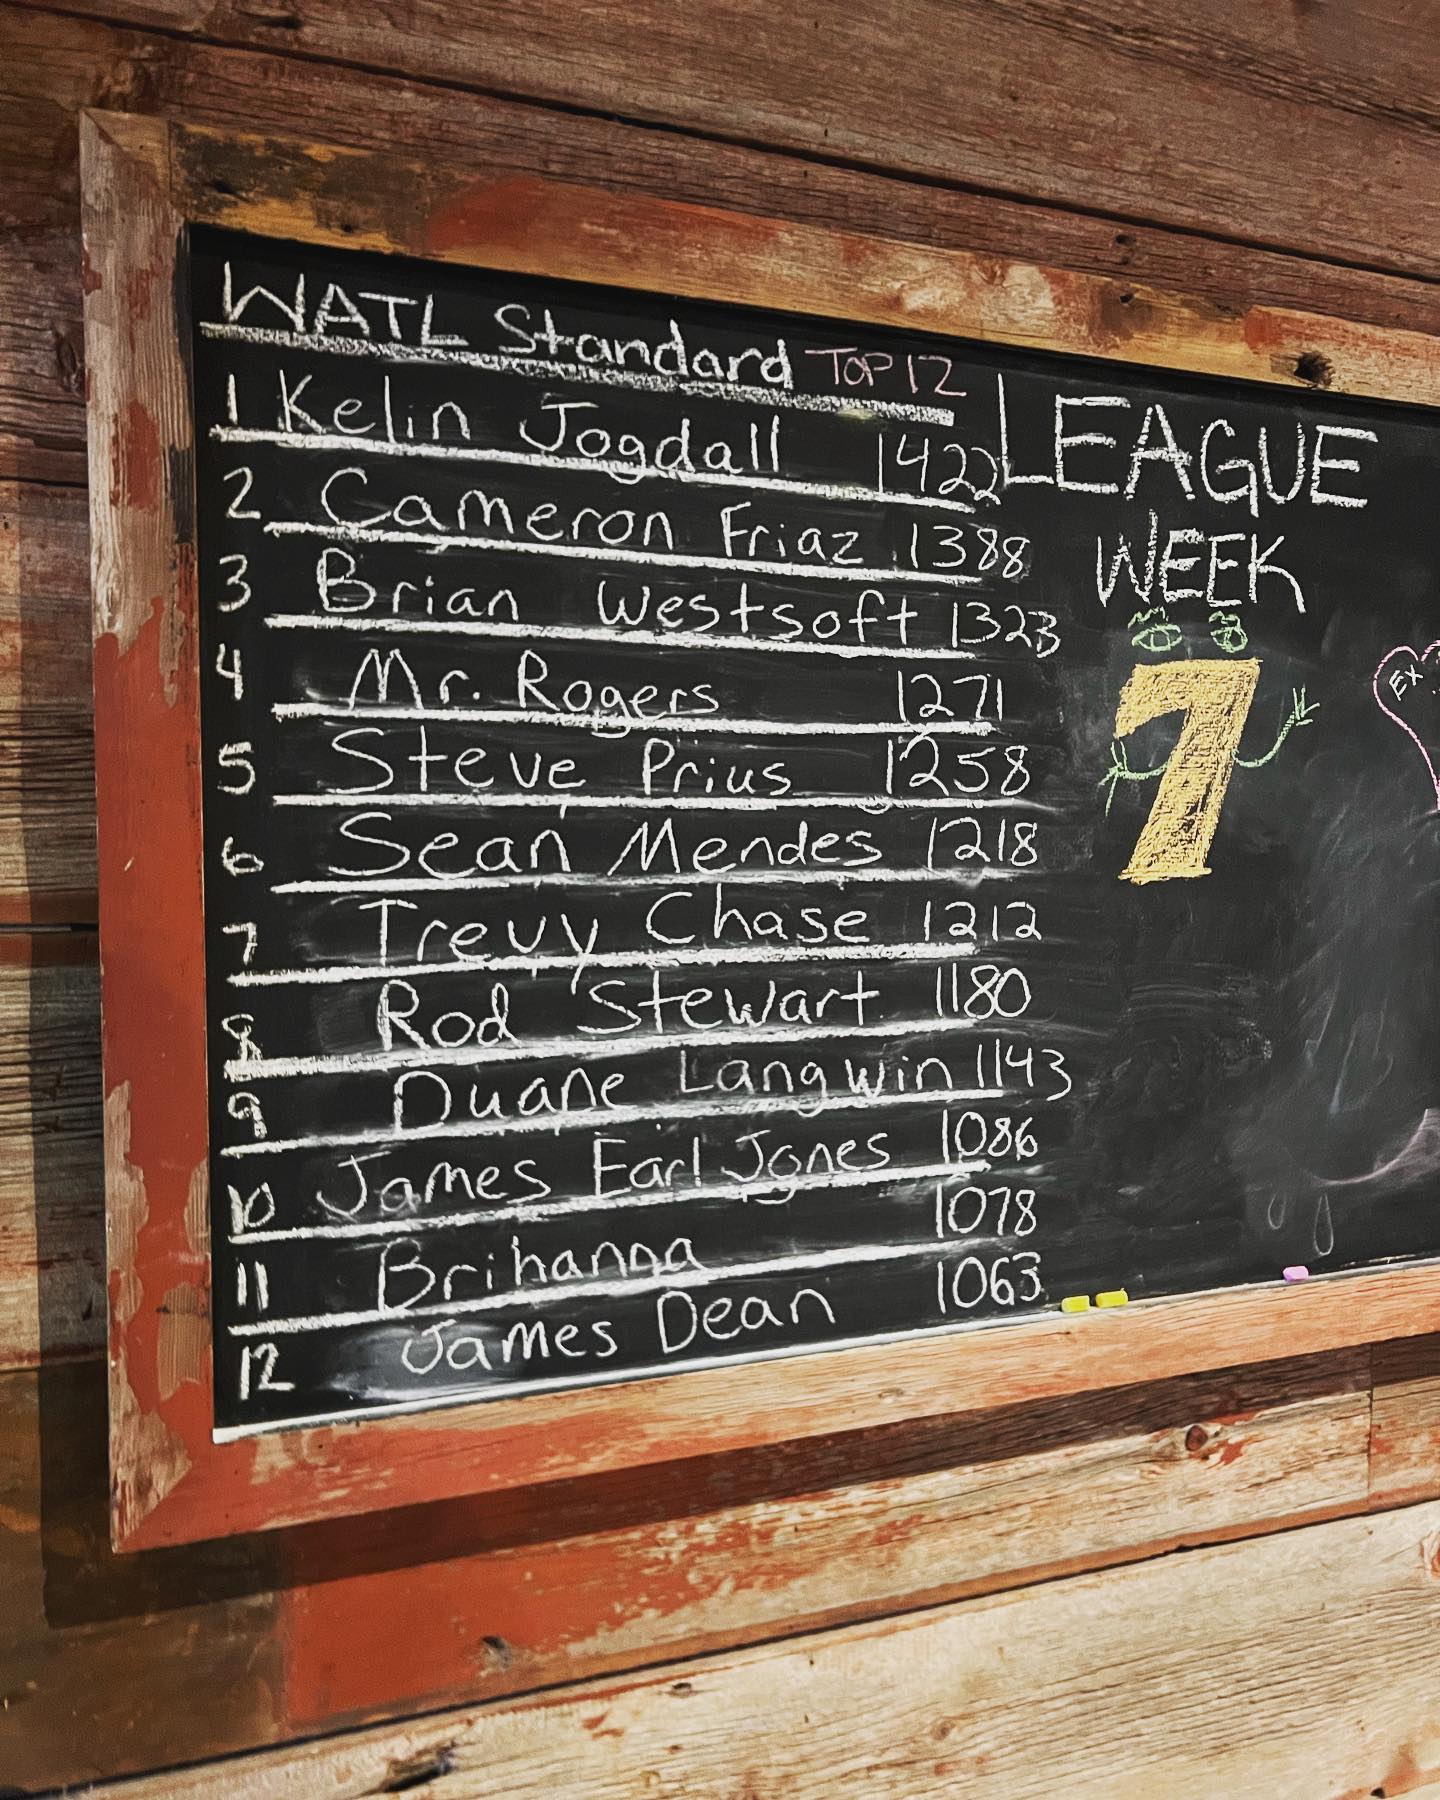 WATL Standard TOP 12
1 Kelin Jogdall 1422
2 Cameron Friaz 1388
3 Brian Westsoft 1323
4 Mr. Rogers 1271
5 Steve Prius 1258
6 Sean Mendes 1218
7 Trevy Chase 1212
8 Rod Stewart 1180
9 Duane Langwin 1143
10 James Earl Jones 1086
11 Brihanna 1078
12 James Dean 1063
LEAGUE
WEEK
7
EX